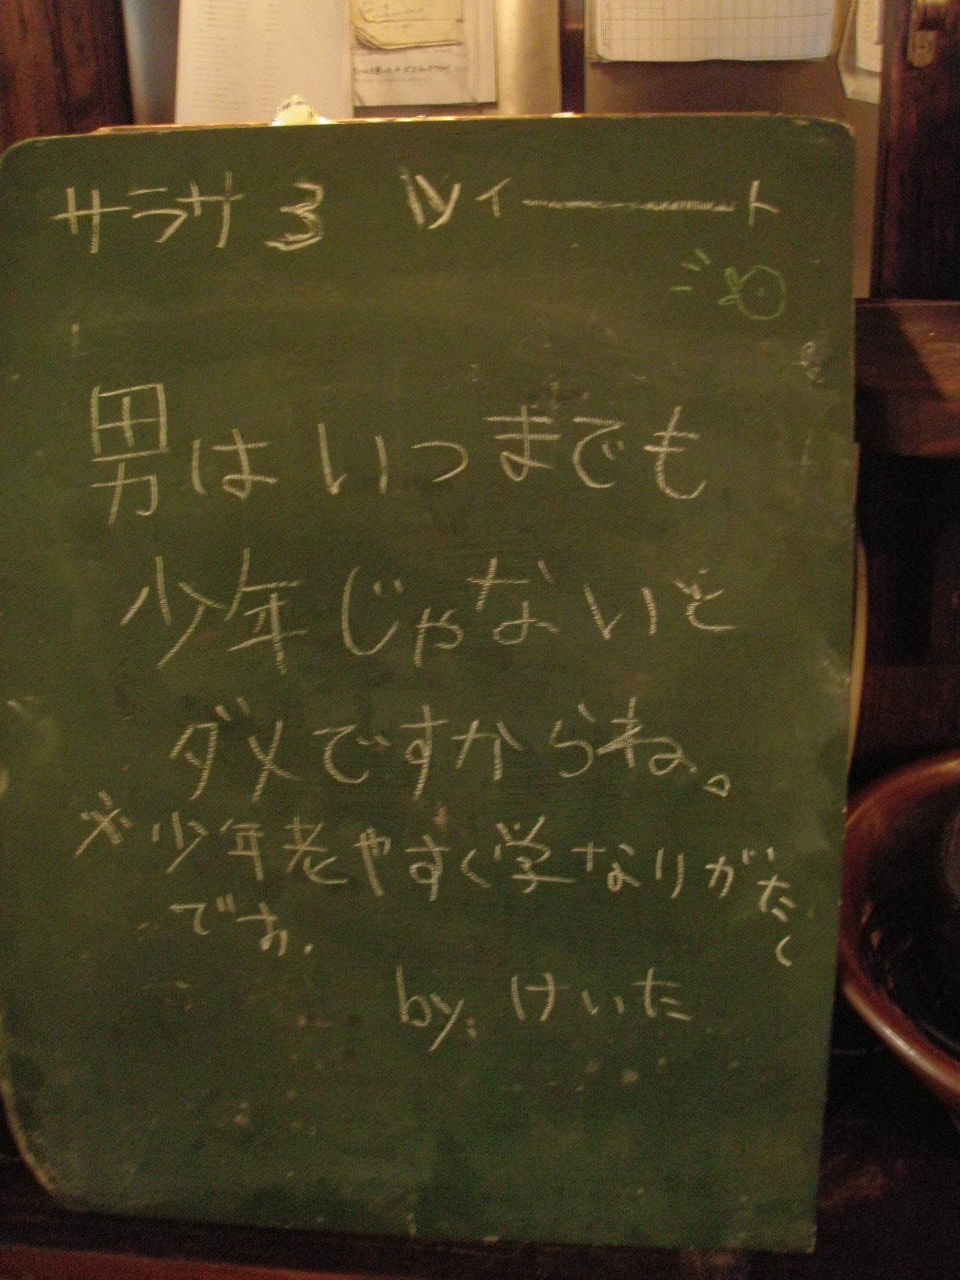 サラサ3 ツイ――ト
男はいつまでも
少年じゃないと
ダメですからね。
※少年老やすく学なりがたく
です.
by. けいた